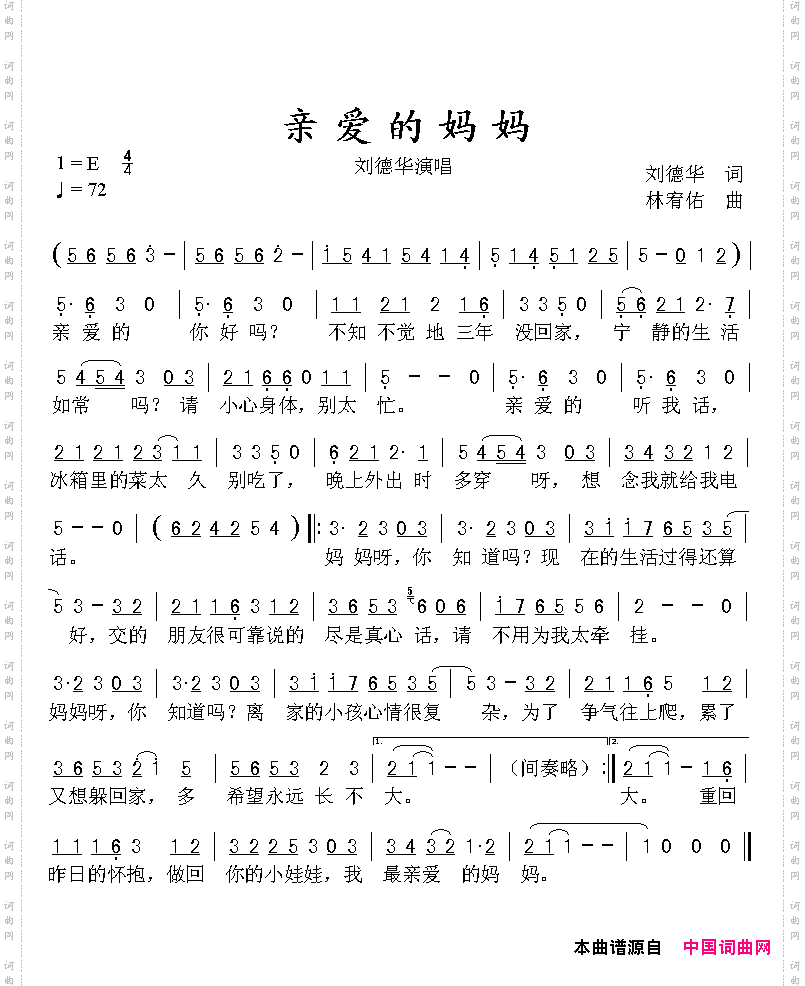 亲爱的妈妈
1=E 4/4
刘德华演唱
刘德华 词
♩=72
林宥佑 曲
(5 6 5 6 3 - | 5 6 5 6 2 - | 1 5 4 1 5 4 1 4 | 5 1 4 5 1 2 5 | 5 - 0 1 2) |
5· 6 3 0 | 5· 6 3 0 | 1 1 2 1 2 1 6 | 3 3 5 0 | 5 6 2 1 2· 7 |
亲 爱 的 你 好 吗? 不知 不觉 地 三年 没回家, 宁 静的生 活
5 4 5 4 3 0 3 | 2 1 6 6 0 1 1 | 5 - - 0 | 5· 6 3 0 | 5· 6 3 0 |
如常 吗? 请 小心身体,别太 忙。 亲 爱 的 听 我 话,
2 1 2 1 2 3 1 1 | 3 3 5 0 | 6 2 1 2· 1 | 5 4 5 4 3 0 3 | 3 4 3 2 1 2 |
冰箱里的菜太 久 别吃了, 晚上外出 时 多穿 呀, 想 念我就给我电
5 - - 0 | (6 2 4 2 5 4) ‖: 3· 2 3 0 3 | 3· 2 3 0 3 | 3 1 1 7 6 5 3 5 |
话。 妈 妈呀,你 知 道吗?现 在的生活过得还算
5 3 - 3 2 | 2 1 1 6 3 1 2 | 3 6 5 3 5 6 0 6 | 1 7 6 5 5 6 | 2 - - 0 |
好,交的 朋友很可靠说的 尽是真心 话,请 不用为我太牵 挂。
3·2 3 0 3 | 3·2 3 0 3 | 3 1 1 7 6 5 3 5 | 5 3 - 3 2 | 2 1 1 6 5 1 2 |
妈妈呀,你 知道吗?离 家的小孩心情很复 杂,为了 争气往上爬,累了
3 6 5 3 2 1 5 | 5 6 5 3 2 3 | 1. 2 1 1 - - | (间奏略):‖ 2. 2 1 1 - 1 6 |
又想躲回家, 多 希望永远 长 不 大。 大。 重回
1 1 1 6 3 1 2 | 3 2 2 5 3 0 3 | 3 4 3 2 1·2 | 2 1 1 - - | 1 0 0 0 ‖
昨日的怀抱,做回 你的小娃娃,我 最亲爱 的妈 妈。
本曲谱源自 中国词曲网
词曲网